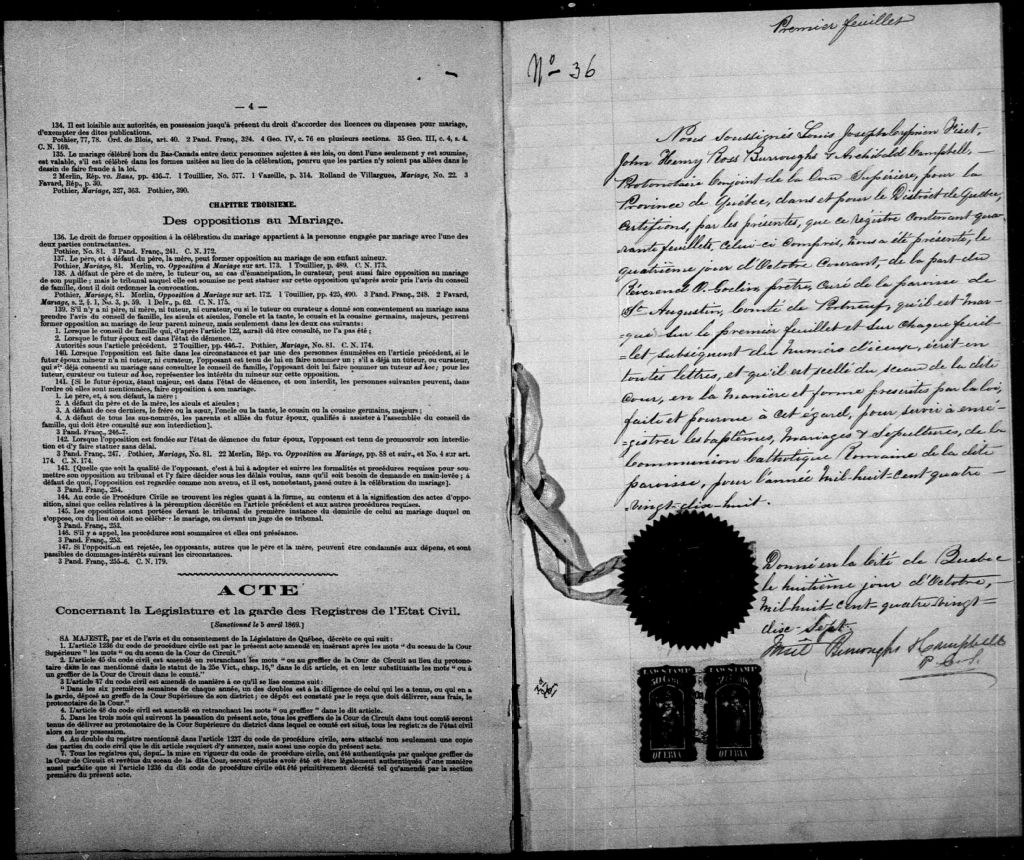 — 4 —
134. Il est loisible aux autorités, en possession jusqu'à présent du droit d'accorder des licences ou dispenses pour mariage,
d'exempter des dites publications.
Pothier, 77, 78. Ord. de Blois, art. 40. 2 Pand. Franç., 324. 4 Geo. IV, c. 76 en plusieurs sections. 35 Geo. III, c. 4, s. 4.
C. N. 169.
135. Le mariage célébré hors du Bas-Canada entre deux personnes sujettes à ses lois, ou dont l'une seulement y est soumise,
est valable, s'il est célébré dans les formes usitées au lieu de la célébration, pourvu que les parties n'y soient pas allées dans le
dessin de faire fraude à la loi.
2 Merlin, Rép. vo. Bans, pp. 436-7. 1 Touillier, No. 577. 1 Vazeille, p. 314. Rolland de Villargues, Mariage, No. 22. 3
Favard, Rép., p. 30.
Pothier, Mariage, 327, 363. Pothier, 390.
CHAPITRE TROISIEME.
Des oppositions au Mariage.
136. Le droit de former opposition à la célébration du mariage appartient à la personne engagée par mariage avec l'une des
deux parties contractantes.
Pothier, No. 81. 3 Pand. Franç., 241. C. N. 172.
137. Le père, et à défaut du père, la mère, peut former opposition au mariage de son enfant mineur.
Pothier, Mariage, 81. Merlin, vo. Opposition à Mariage sur art. 173. 1 Touillier, p. 489. C. N. 173.
138. A défaut de père et de mère, le tuteur ou, au cas d'émancipation, le curateur, peut aussi faire opposition au mariage
de son pupille; mais le tribunal auquel elle est soumise ne peut statuer sur cette opposition qu'après avoir pris l'avis du conseil
de famille, dont il doit ordonner la convocation.
Pothier, Mariage, 81. Merlin, Opposition à Mariage sur art. 172. 1 Touillier, pp. 425, 490. 3 Pand. Franç., 248. 2 Favard,
Mariage, s. 2, § 1, No. 3, p. 59. 1 Delv., p. 62. C. N. 175.
139. S'il n'y a ni père, ni mère, ni tuteur, ni curateur, ou si le tuteur ou curateur a donné son consentement au mariage sans
prendre l'avis du conseil de famille, les aieuls et aieules, l'oncle et la tante, le cousin et la cousine germains, majeurs, peuvent
former opposition au mariage de leur parent mineur, mais seulement dans les deux cas suivants:
1. Lorsque le conseil de famille qui, d'après l'article 122, aurait dû être consulté, ne l'a pas été;
2. Lorsque le futur époux est dans l'état de démence.
Autorités sous l'article précédent. 2 Touillier, pp. 446-7. Pothier, Mariage, No. 81. C. N. 174.
140. Lorsque l'opposition est faite dans les circonstances et par une des personnes énumérées en l'article précédent, si le
futur époux mineur n'a ni tuteur, ni curateur, l'opposant est tenu de lui en faire nommer un; s'il a déjà un tuteur, ou curateur,
qui ait déjà consenti au mariage sans consulter le conseil de famille, l'opposant doit lui faire nommer un tuteur ad hoc; pour les
tuteur, curateur ou tuteur ad hoc, représenter les intérêts du mineur sur cette opposition.
141. [Si le futur époux, étant majeur, est dans l'état de démence, et non interdit, les personnes suivantes peuvent, dans
l'ordre où elles sont mentionnées, faire opposition à son mariage.
1. Le père, et, à son défaut, la mère;
2. A défaut du père et de la mère, les aieuls et aieules;
3. A défaut de ces derniers, le frère ou la sœur, l'oncle ou la tante, le cousin ou la cousine germains, majeurs;
4. A défaut de tous les sus-nommés, les parents et alliés du futur époux, qualifiés à assister à l'assemblée du conseil de
famille, qui doit être consulté sur son interdiction].
3 Pand. Franç., 246-7.
142. Lorsque l'opposition est fondée sur l'état de démence du futur époux, l'opposant est tenu de promouvoir son interdic-
tion et d'y faire statuer sans délai.
3 Pand. Franç., 247. Pothier, Mariage, No. 81. 22 Merlin, Rép. vo. Opposition au Mariage, pp. 88 et suiv., et No. 4 sur art.
174. C. N. 174.
143. [Quelle que soit la qualité de l'opposant, c'est à lui à adopter et suivre les formalités et procédures requises pour sou-
mettre son opposition au tribunal et l'y faire décider sous les délais voulus, sans qu'il soit besoin de demande en main-levée; à
défaut de quoi, l'opposition est regardée comme non avenu, et il est, nonobstant, passé outre à la célébration du mariage].
3 Pand. Franç., 254.
144. Au code de Procédure Civile se trouvent les règles quant à la forme, au contenu et à la signification des actes d'oppo-
sition, ainsi que celles relatives à la péremption décrétée en l'article précédent et aux autres procédures requises.
145. Les oppositions sont portées devant le tribunal de première instance du domicile de celui au mariage duquel on
s'oppose, ou du lieu où doit se célébrer le mariage, ou devant un juge de ce tribunal.
3 Pand. Franç., 253.
146. S'il y a appel, les procédures sont sommaires et elles ont préséance.
3 Pand. Franç., 253.
147. Si l'opposition est rejetée, les opposants, autres que le père et la mère, peuvent être condamnés aux dépens, et sont
passibles de dommages-intérêts suivant les circonstances.
3 Pand. Franç., 255-6. C. N. 179.
ACTE
Concernant la Législature et la garde des Registres de l'Etat Civil.
[Sanctionné le 5 avril 1869.]
SA MAJESTÉ, par et de l'avis et du consentement de la Législature de Québec, décrète ce qui suit:
1. L'article 1236 du code de procédure civile est par le présent acte amendé en insérant après les mots "du sceau de la Cour
Supérieure" les mots "ou du sceau de la Cour de Circuit."
2. L'article 45 du code civil est amendé en retranchant les mots "ou au greffier de la Cour de Circuit au lieu du protono-
taire dans le cas mentionné dans le statut de la 25e Vict., chap. 16," dans le dit article, et en leur substituant les mots "ou à
un greffier de la Cour de Circuit dans le comté."
3 L'article 47 du code civil est amendé de manière à ce qu'il se lise comme suit:
"Dans les six premières semaines de chaque année, un des doubles est à la diligence de celui qui les a tenus, ou qui en a
la garde, déposé au greffe de la Cour Supérieure de son district; ce dépôt est constaté par le reçu que doit délivrer, sans frais, le
protonotaire de la Cour."
4. L'article 48 du code civil est amendé en retranchant les mots "ou greffier" dans le dit article.
5. Dans les trois mois qui suivront la passation du présent acte, tous les greffiers de la Cour de Circuit dans tout comté seront
tenus de délivrer au protonotaire de la Cour Supérieure du district dans lequel ce comté est situé, tous les registres de l'état civil
alors en leur possession.
6. Au double du registre mentionné dans l'article 1237 du code de procédure civile, sera attaché non seulement une copie
des parties du code civil que le dit article requiert d'y annexer, mais aussi une copie du présent acte.
7. Tous les registres qui, depuis la mise en vigueur du code de procédure civile, ont été authentiqués par quelque greffier de
la Cour de Circuit et revêtus du sceau de la dite Cour, seront réputés avoir été et être légalement authentiqués d'une manière
aussi parfaite que si l'article 1236 du dit code de procédure civile eût été primitivement décrété tel qu'amendé par la section
première du présent acte.
Premier feuillet
No 36
Nous soussignés Louis Joseph Cyprien Fiset,
John Henry Ross Burroughs & Archibald Campbell,
Protonotaire Conjoint de la Cour Supérieure, pour la
Province de Québec, dans et pour le District de Québec,
Certifions, par les présentes, que ce registre contenant qua-
rante feuillets, celui-ci compris, nous a été présenté, le
quatrième jour d'Octobre Courant, de la part du
Révérend O. Godin, prêtre, Curé de la paroisse de
St. Augustin, Comté de Portneuf, qu'il est mar-
=qué sur le premier feuillet et sur chaque feuil-
=let subséquent du numéro d'iceux, écrit en
toutes lettres, et qu'il est scellé du sceau de la dite
Cour, en la manière et forme prescrites par la loi,
faite et pourvue à cet égard, pour servir à enré-
=gistrer les baptêmes, mariages & sépultures, de la
Communion Catholique Romaine de la dite
paroisse, pour l'année mil-huit-cent-quatre-
vingt-dix-huit.
Donné en la Cité de Québec
le huitième jour d'Octobre,
mil-huit-cent-quatre-vingt-
dix-sept.
Fiset Burroughs & Campbell
P. C. S.
LAW STAMP
LAW STAMP
QUEBEC
QUEBEC